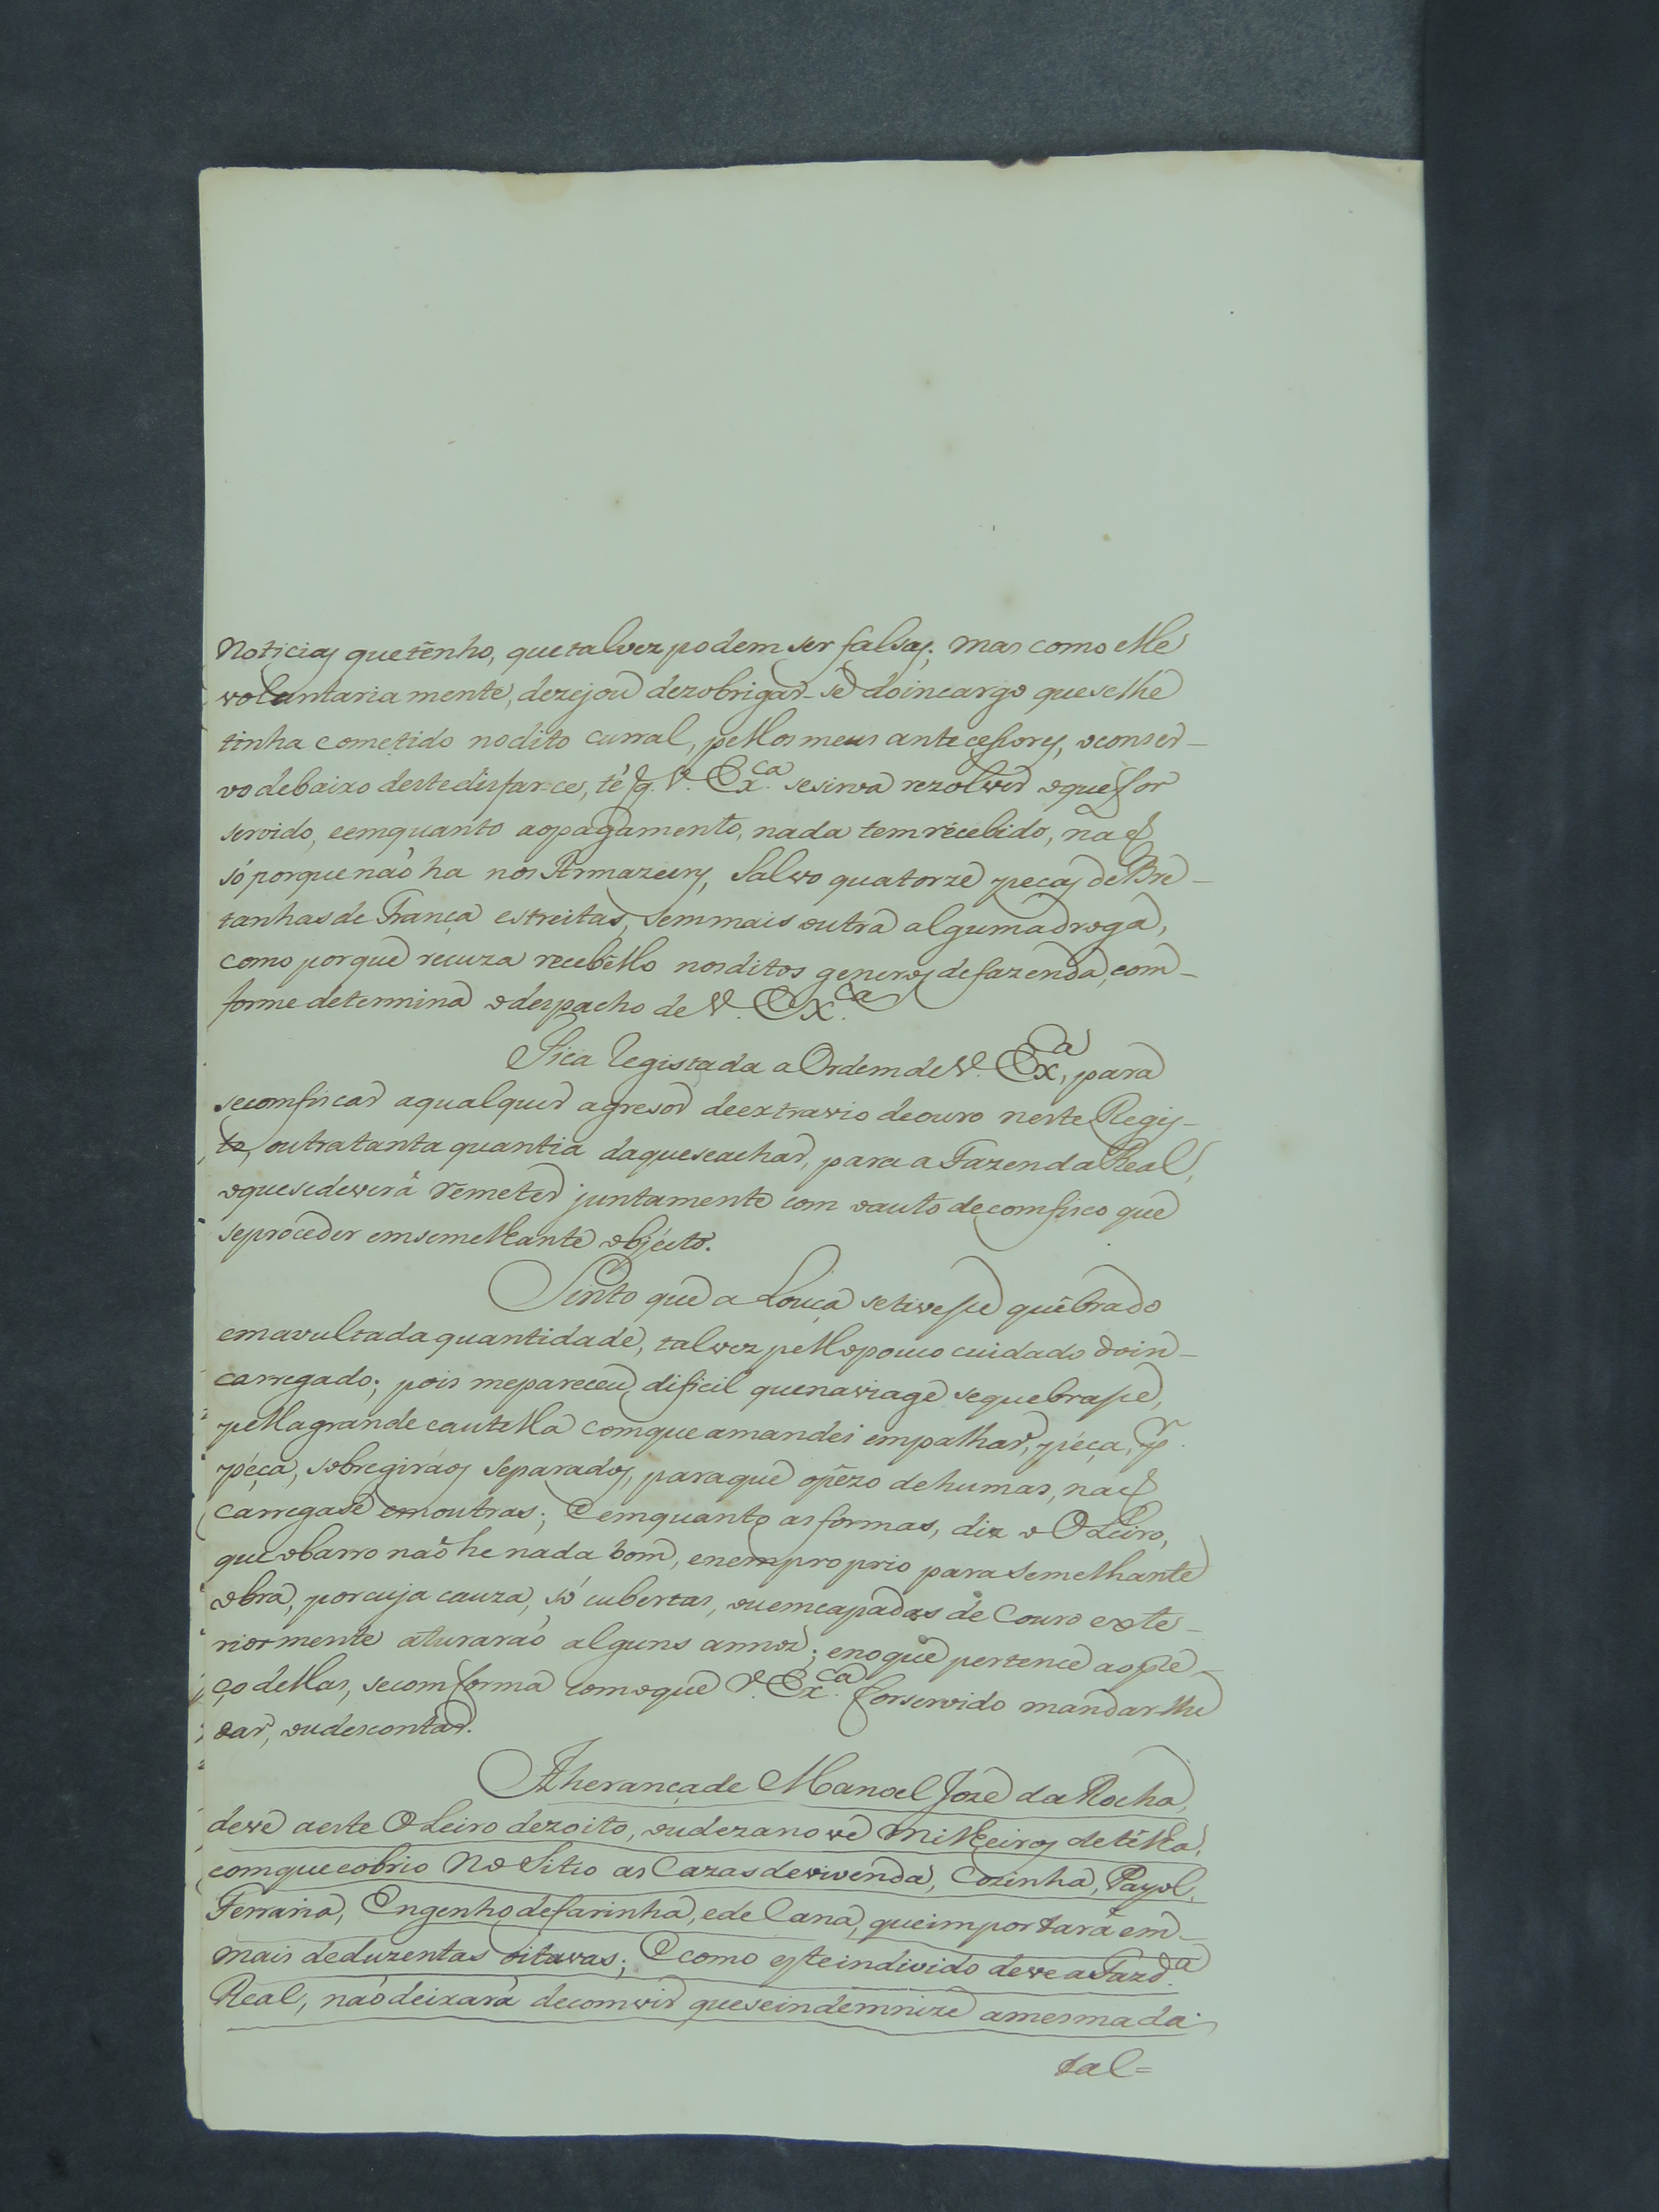 Noticias que tenho, que talvez podem ser falsas; mas como elle
voluntaria mente, dezejou dezobrigar-se do incargo que se lhe
tinha cometido no dito curral, pellos meus antecessores, o conser-
vo debaixo deste disfar-ce, té q. V. Ex.ca se sirva rezolver o que for
servido, e emquanto ao pagamento, nada tem recebido, naõ
só porque naõ ha nos Armazeins, Salvo quatorze peças de Bre-
tanhas de França estreitas, sem mais outra alguma droga,
como porque recuza recebello nos ditos generos de fazenda, com-
forme determina o despacho de V. Ex.ca
Fica Registada a Ordem de V. Ex.a, para
se comfiscar a qualquer agresor de extravio de ouro neste Regis-
to, outra tanta quantia da que se achar, para a Fazenda Real,
o que se deverá remeter juntamente com o auto de comfisco que
se proceder em semelhante objécto.
Sinto que a Louça se tivesse quebrado
em avultada quantidade, talvez pello pouco cuidado do in-
carregado; pois me pareceu dificil que na viage se quebrasse,
pella grande cautella com que a mandei empalhar, péça, p.r
péça, sobre giráos separados, para que o pezo de humas, naõ
carregase em outras; E emquanto as fórmas, diz o Oleiro,
que o barro naõ he nada bom, e nem proprio para semelhante
obra, por cuja cauza, só cubertas, ou emcapadas de Couro exte-
riormente aturaraõ alguns annos; e no que pertence ao pre-
ço dellas, se comforma com o que V. Ex.ca for servido mandar-lhe
dar, ou descontar.
A herança de Manoel Joze da Rocha,
deve a este Oleiro dezoito, ou dezanove milheiros de télha,
com que cobrio No Sitio as Cazas de vivenda, Cozinha, Payol,
Ferraria, Engenho de farinha, e de Cana, que importará em
mais de duzentas oitavas; E como este individo deve a Fazd.a
Real, naõ deixará de comvir que se indemnize a mesma da
tal=